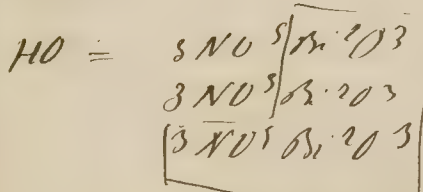 HO = 3 NO⁵ Bi·²O³
3 NO⁵ Bi·²O³
3 NO⁵ Bi·²O³